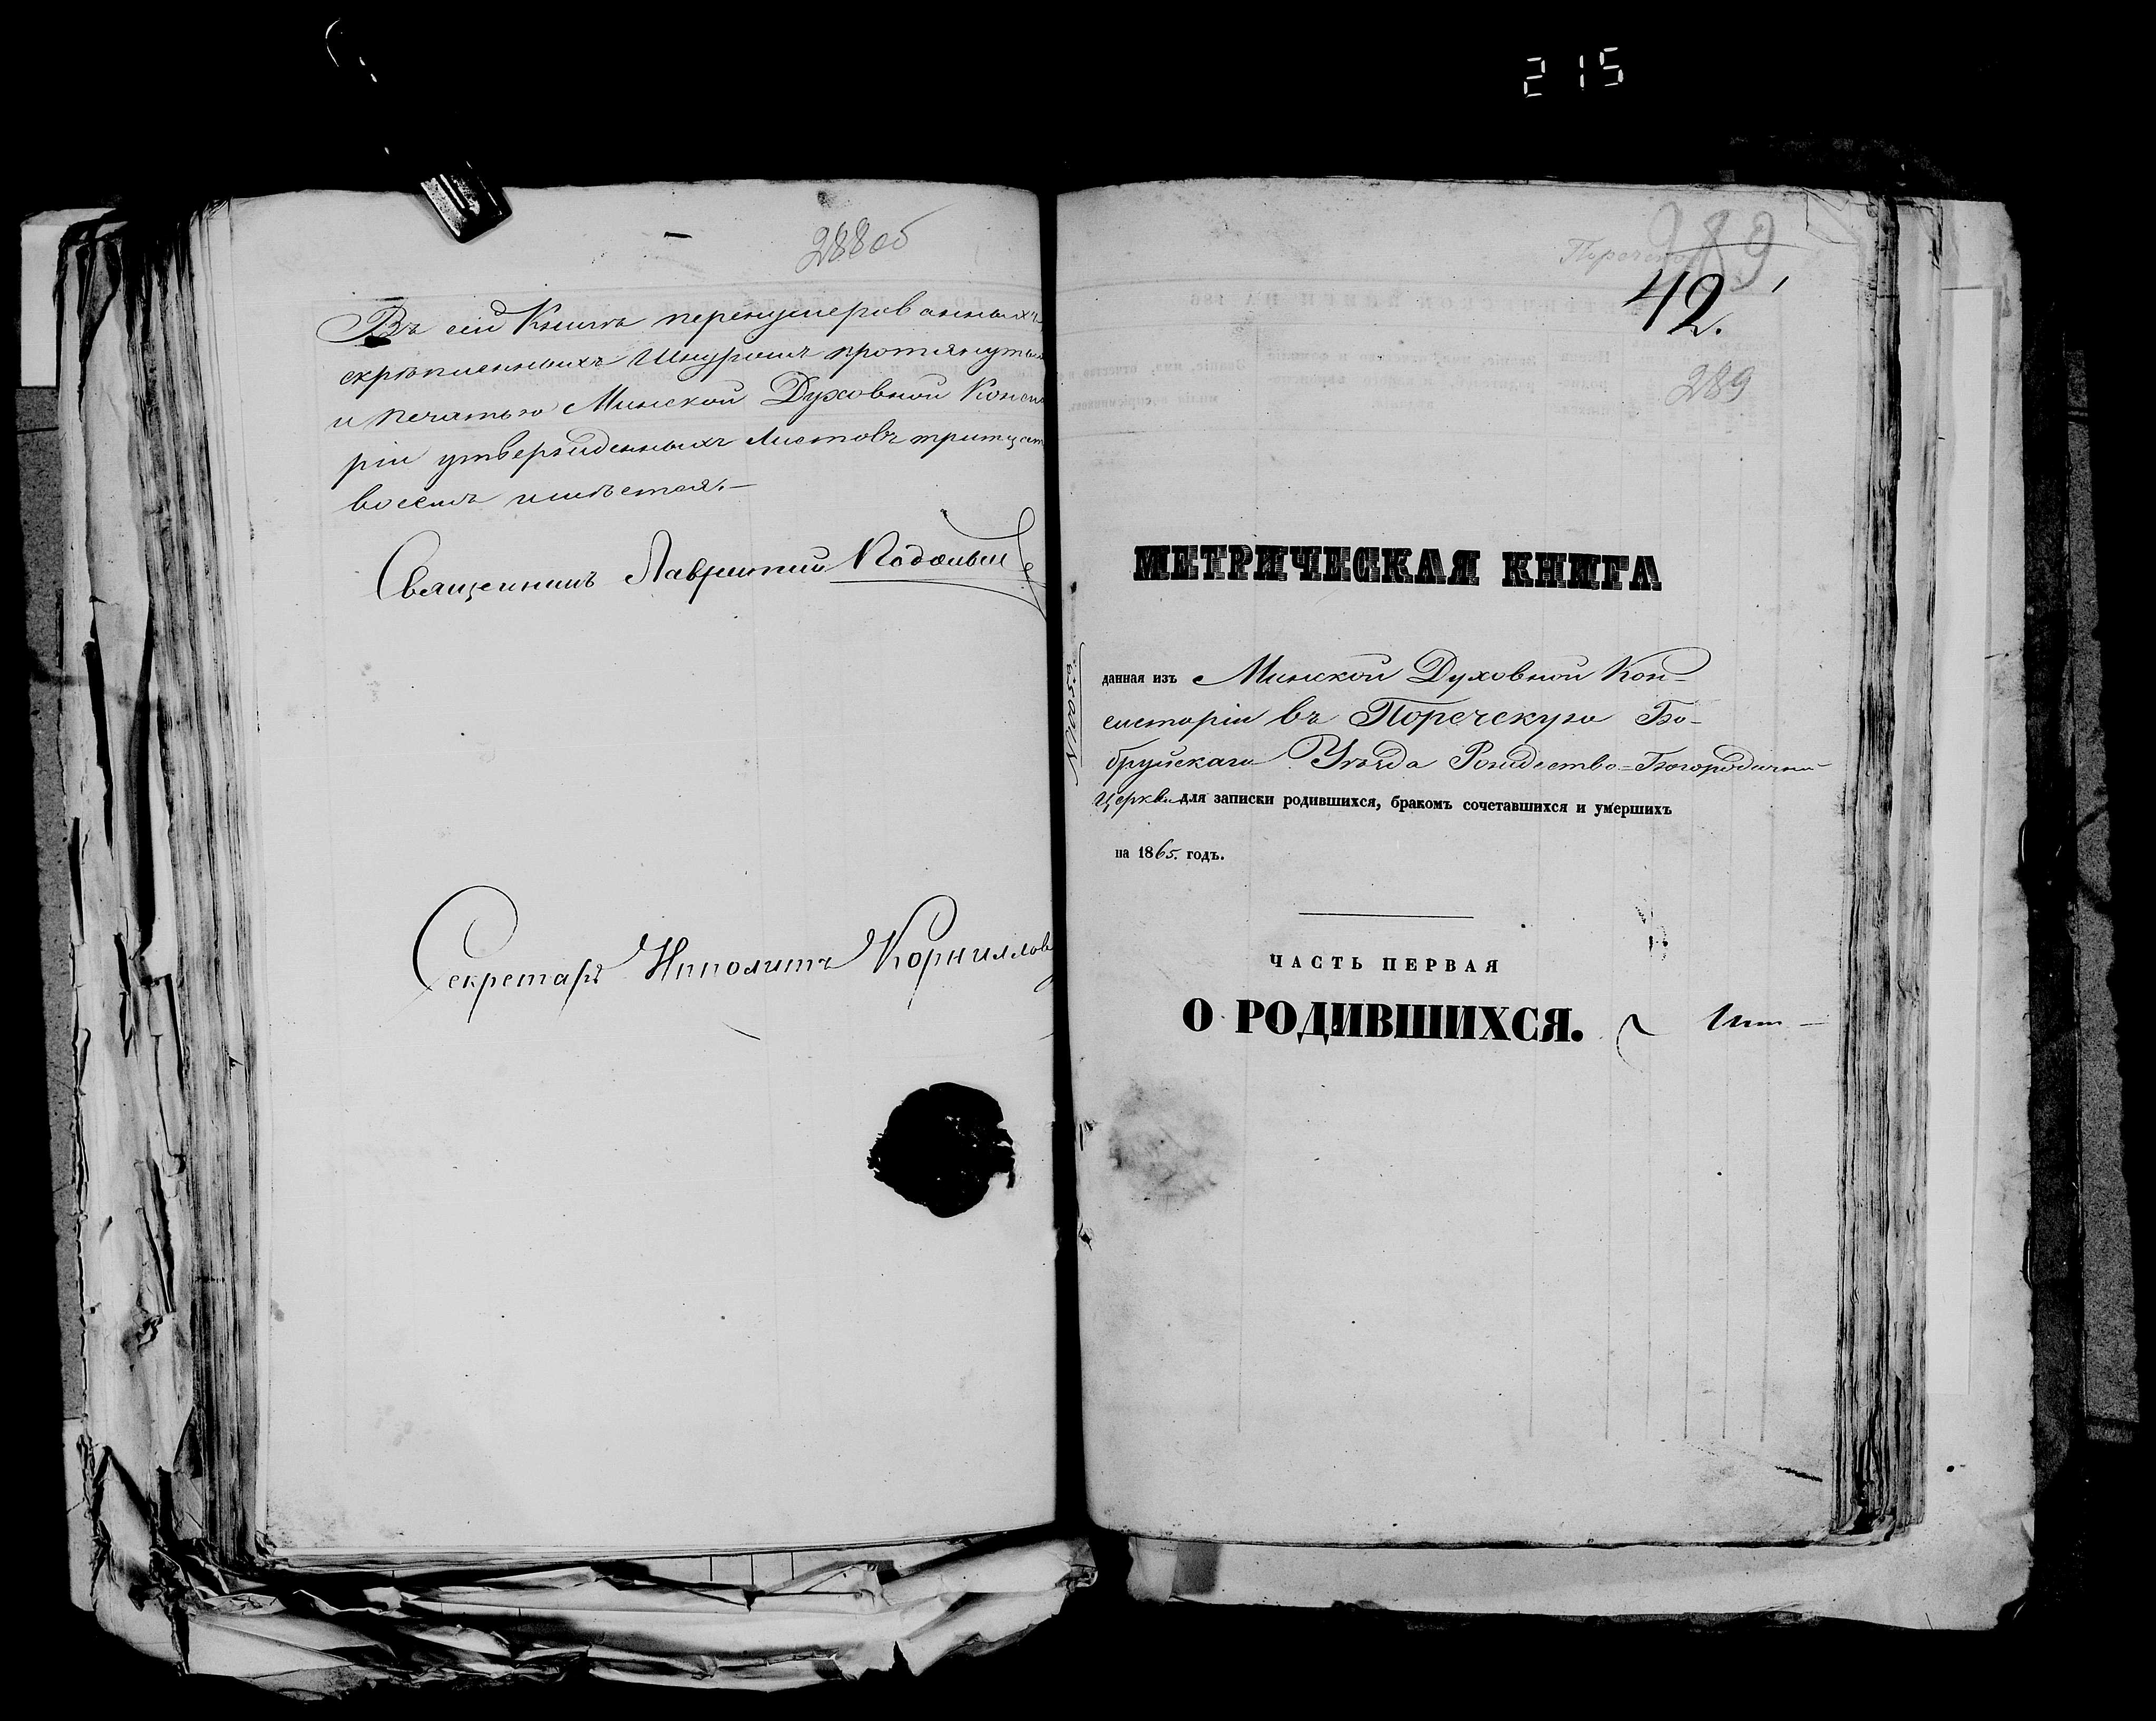 215
288об
Въ сей Книгѣ перенумерованныхъ
скрѣпленныхъ Шнуромъ протянутых
и печатью Минской Духовной Консис
ріи утвержденныхъ Листовъ тритцат
восемь имѣется.—
Священникъ Лаврентій
Секретарь Ипполитъ Корнилов
289
42.
289
МЕТРИЧЕСКАЯ КНИГА
данная изъ Минской Духовной Кон-
систоріи въ Поречскую Бо-
бруйскаго Уѣзда Рождество=Богородичной
Церкви для записки родившихся, бракомъ сочетавшихся и умершихъ
на 1865. годъ.
ЧАСТЬ ПЕРВАЯ
О РОДИВШИХСЯ.